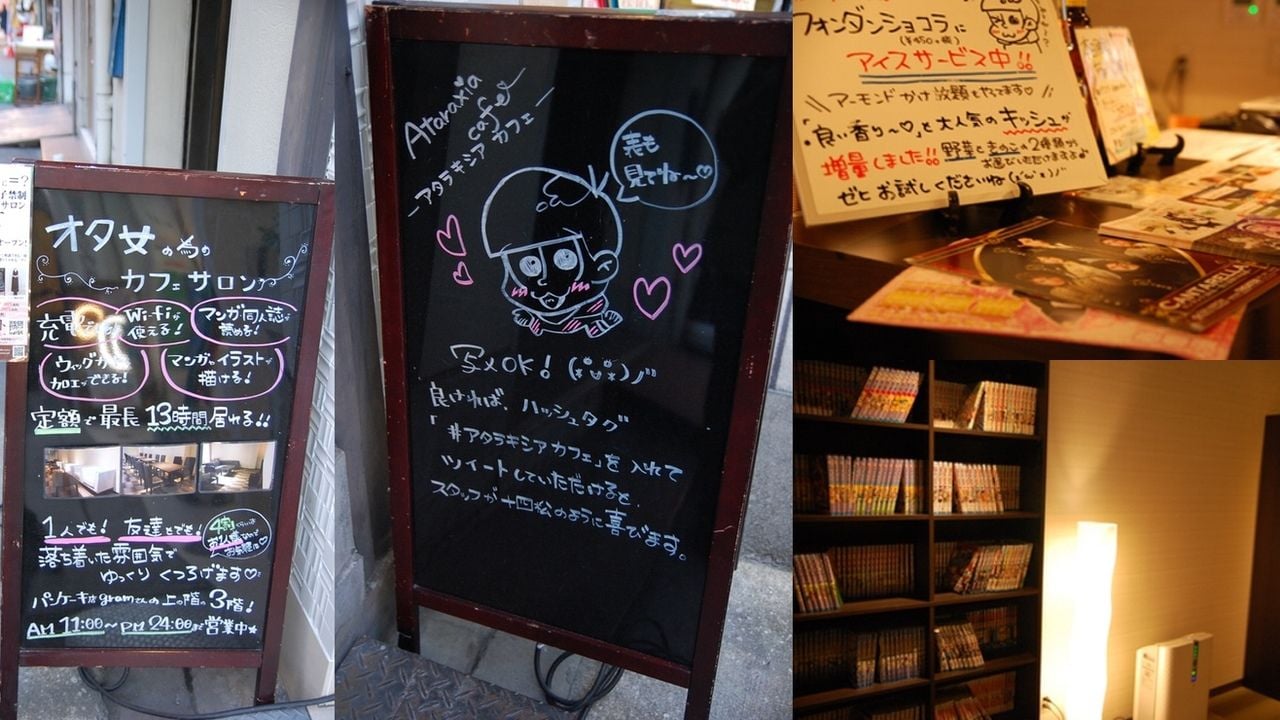 オタ女の為の
カフェサロン
Wi-Fiが
使える!
マンガ同人誌が
読める!
加工ができる!
マンガやイラストが
描ける!
定額で最長13時間居れる!!
1人でも! 友達とでも!
落ち着いた雰囲気で
ゆっくりくつろげます♡
パンケーキ店gramさんの上の階の3階!
AM 11:00~PM 24:00まで営業中★
Ataraxia
cafe
-アタラキシアカフェ-
表も
見てね~♡
写メOK!
良ければ、ハッシュタグ
「#アタラキシアカフェ」を入れて
ツイートしていただけると、
スタッフが十四松のように喜びます。
フォンダンショコラに
(¥450+税)
アイスサービス中!!
\\ アーモンドかけ放題もやってます♡ //
「良い香り~♡」と大人気のキッシュが
増量しました!! 野菜ときのこの2種類から
お選びいただけます♪
ぜひお試しくださいね